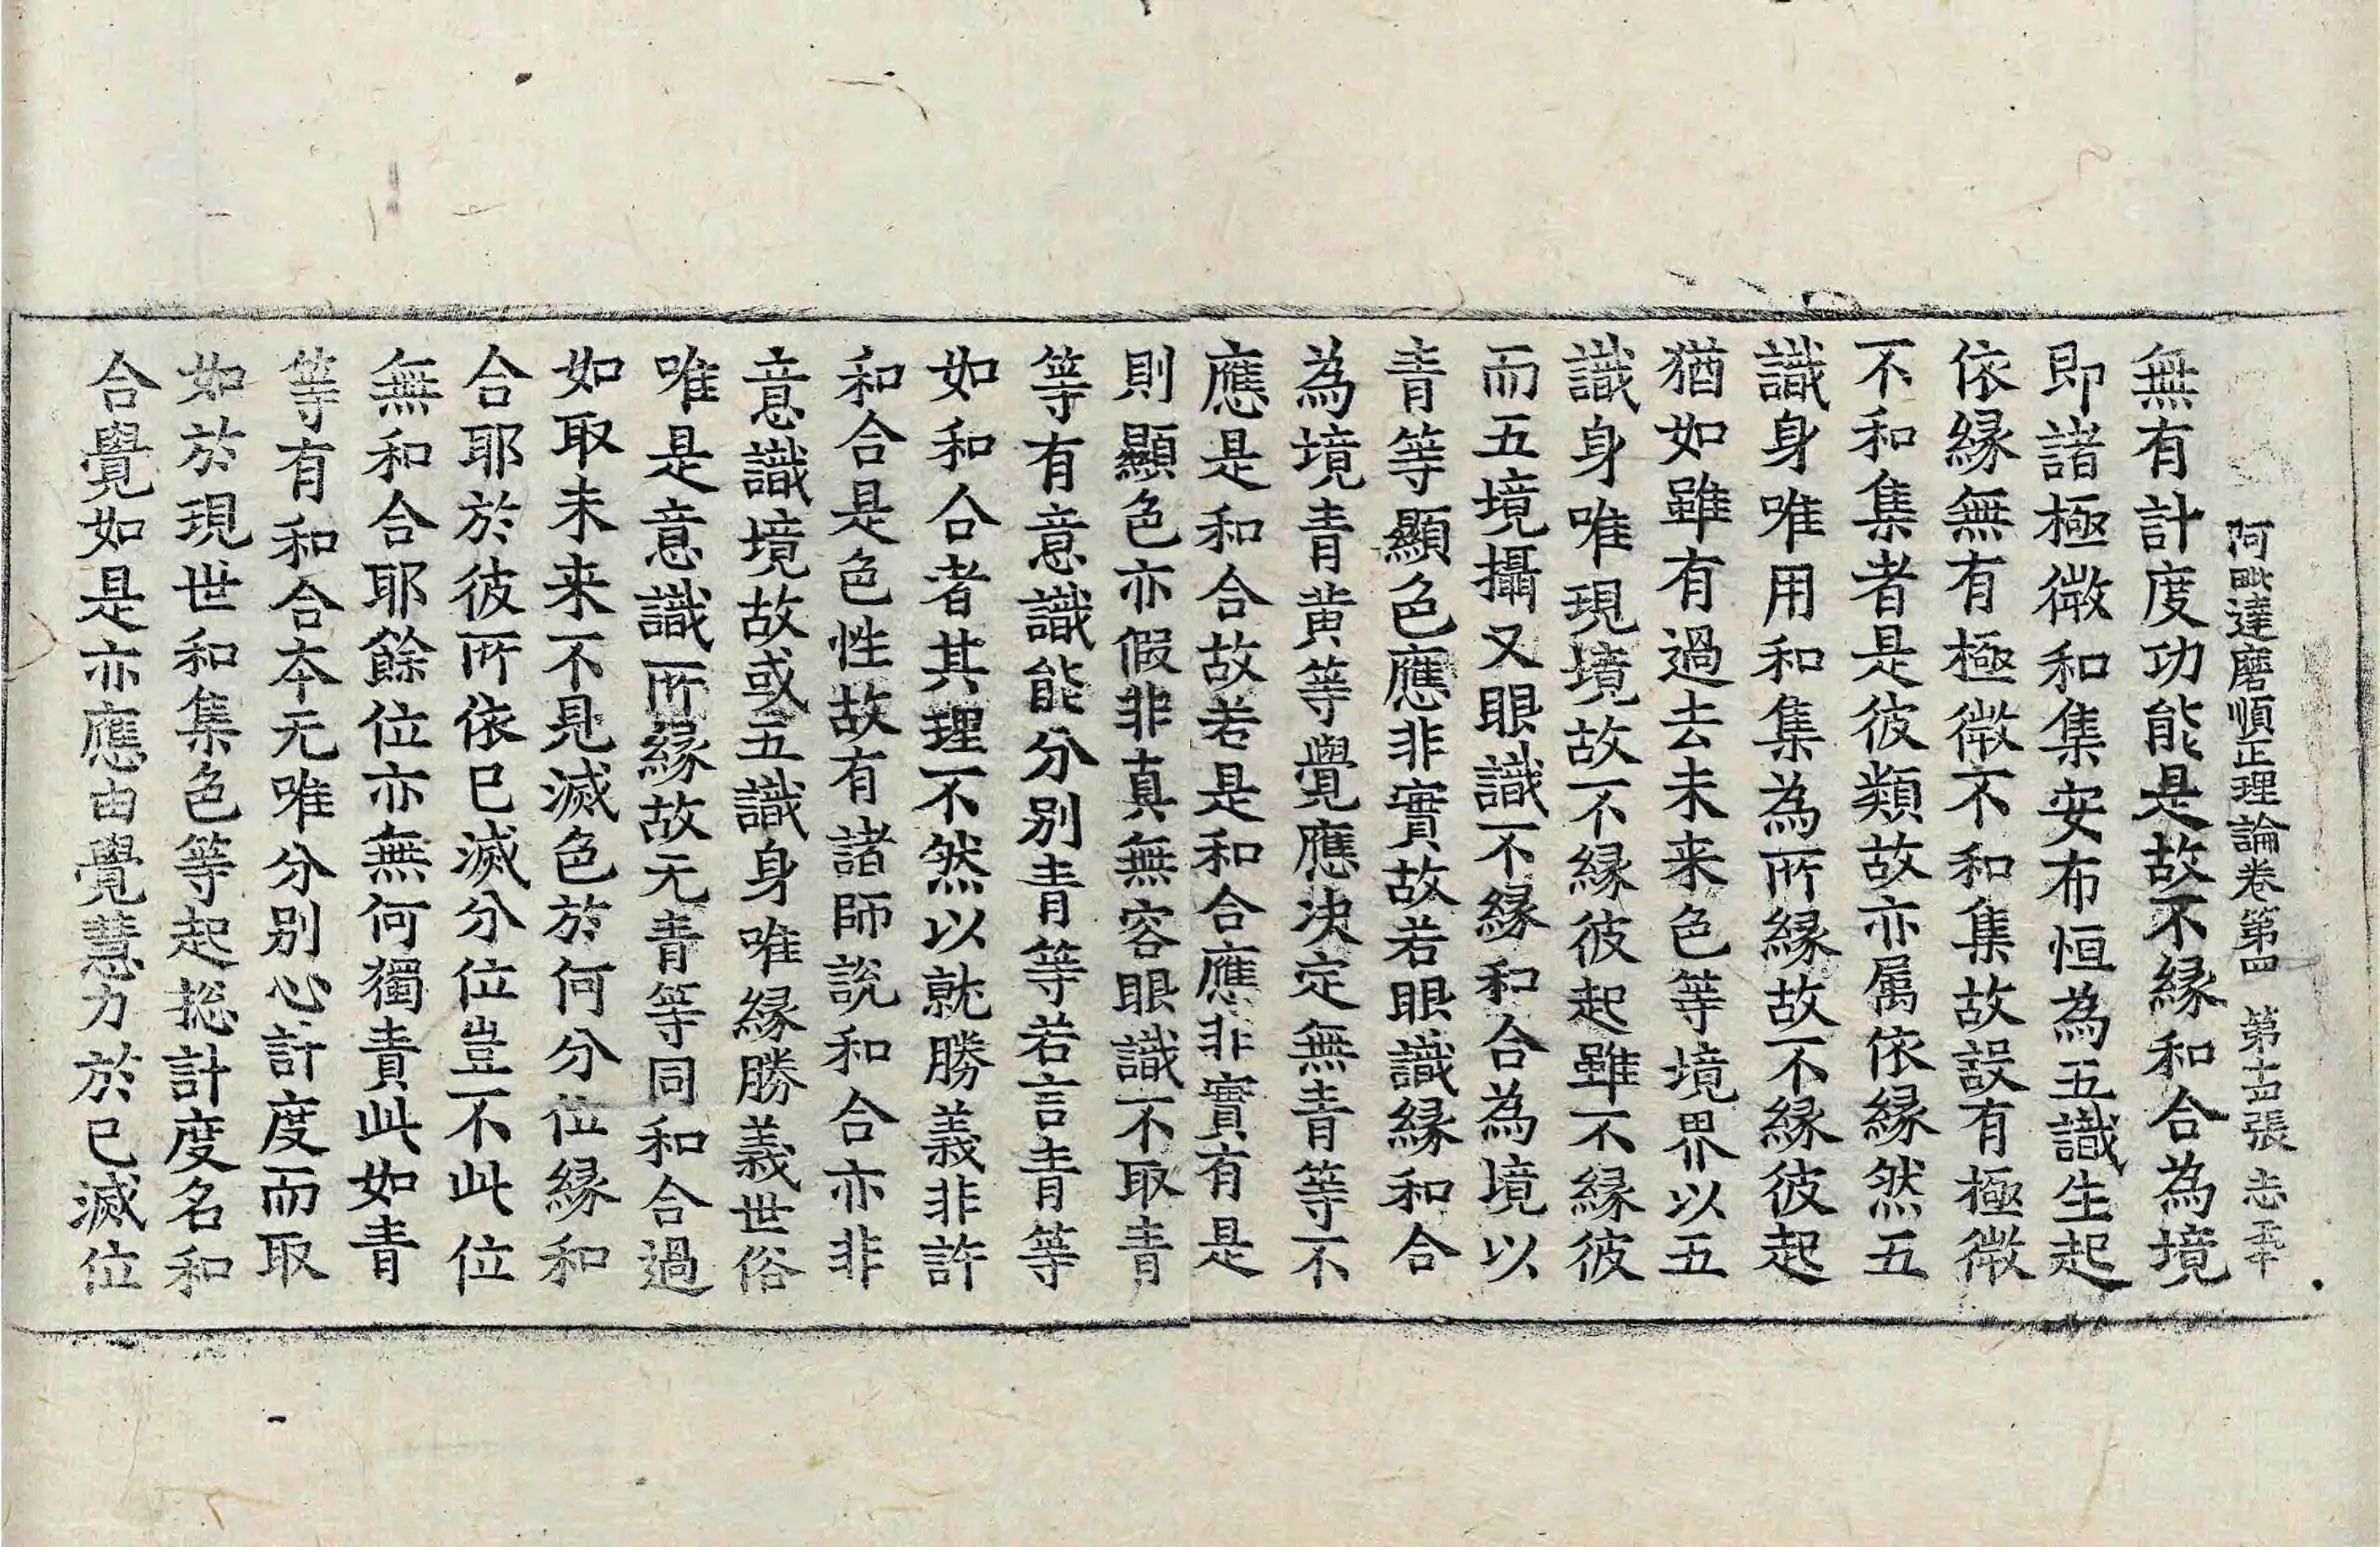 阿毗達磨順正理論卷第四 第十四張 志
無有計度功能是故不緣和合為境
即諸極微和集安布恒為五識生起
依緣無有極微不和集故設有極微
不和集者是彼類故亦属依緣然五
識身唯用和集為所緣故不緣彼起
猶如雖有過去未来色等境界以五
識身唯現境故不緣彼起雖不緣彼
而五境攝又眼識不緣和合為境以
青等顯色應非實故若眼識緣和合
為境青黄等覺應决定無青等不
應是和合故若是和合應非實有是
則顯色亦假非真無容眼識不取青
等有意識能分别青等若言青等
如和合者其理不然以就勝義非許
和合是色性故有諸師說和合亦非
意識境故或五識身唯緣勝義世俗
唯是意識所緣故无青等同和合過
如取未来不見滅色於何分位緣和
合耶於彼所依已滅分位豈不此位
無和合耶餘位亦無何獨責此如青
等有和合本无唯分别心計度而取
如於現世和集色等起捴計度名和
合覺如是亦應由覺慧力於已滅位